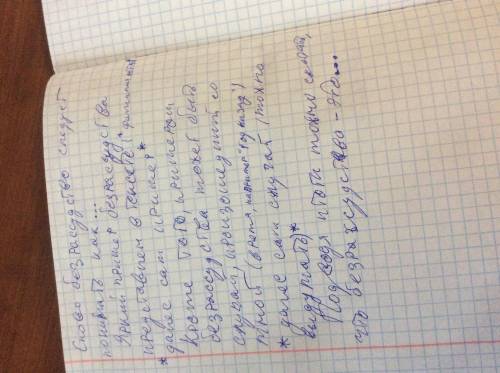 Слово безрассудство следует
понимать как ...
Яркий пример безрассудства
представлен в тексте (фамилия)
* далее сам пример *
Кроме того, примером
безрассудства может быть
случай, произошедший со
мной (время, например "год назад")
* далее сам случай (можно
выдумать) *
Подводя итоги можно сказать,
что безрассудство - это...